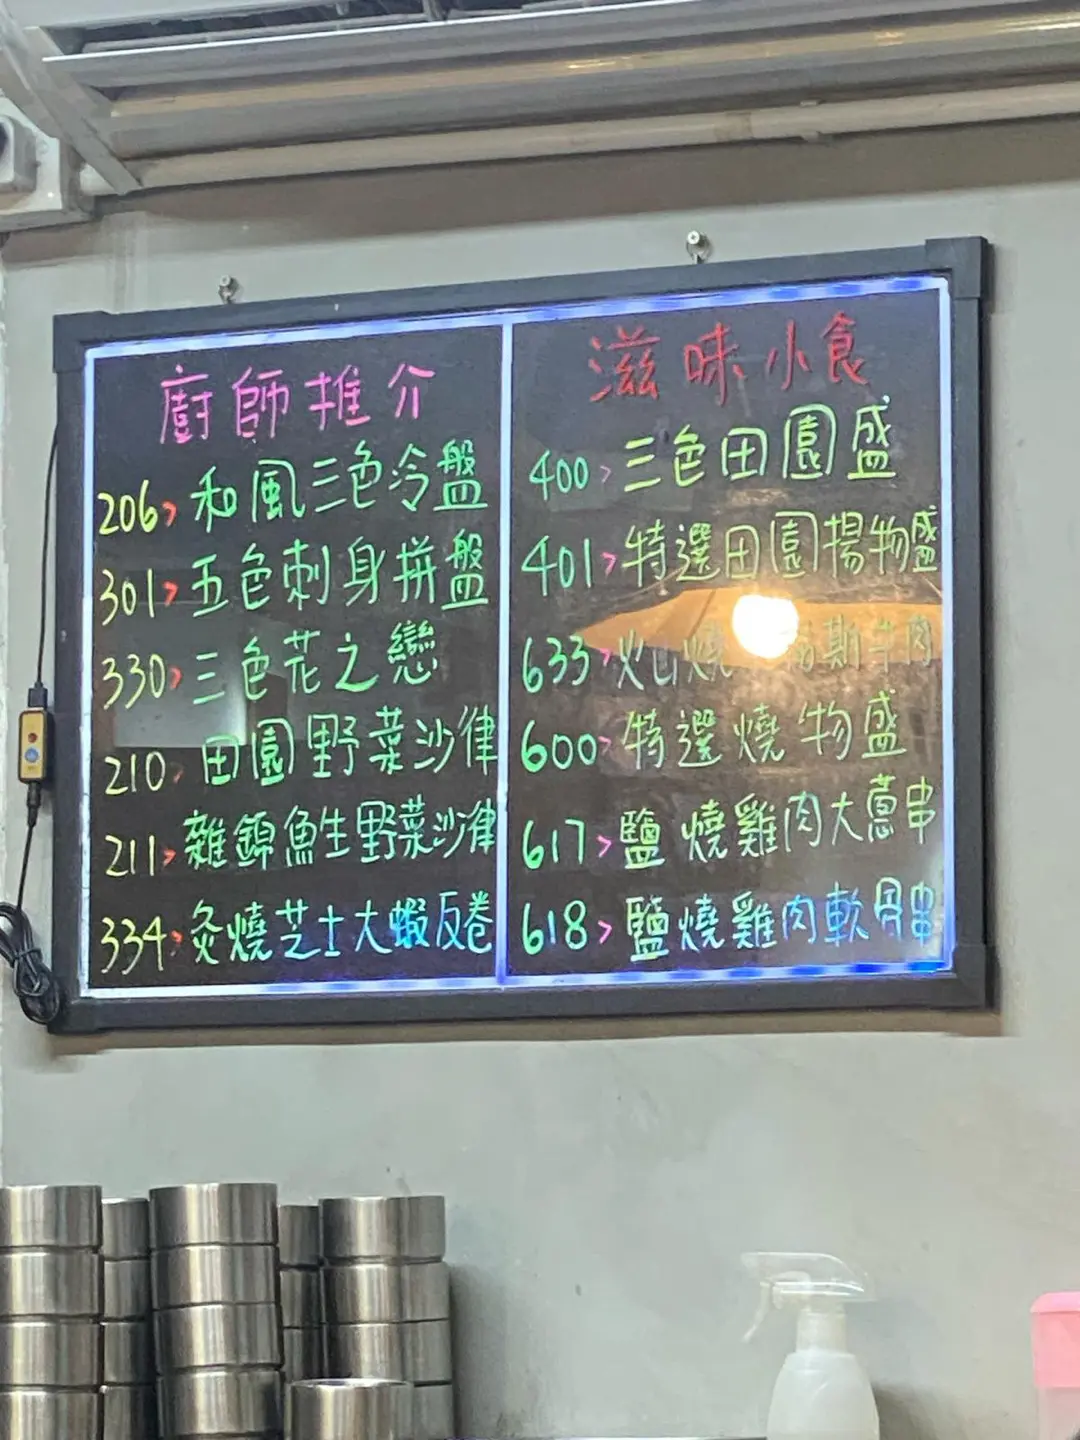 廚師推介
206>和風三色冷盤
301>五色刺身拼盤
330>三色花之戀
210>田園野菜沙律
211>雜錦魚生野菜沙律
334>炙燒芝士大蝦反卷
滋味小食
400>三色田園盛
401>特選田園揚物盛
633>火山燒 斯牛肉
600>特選燒物盛
617>鹽燒雞肉大蔥串
618>鹽燒雞肉軟骨串